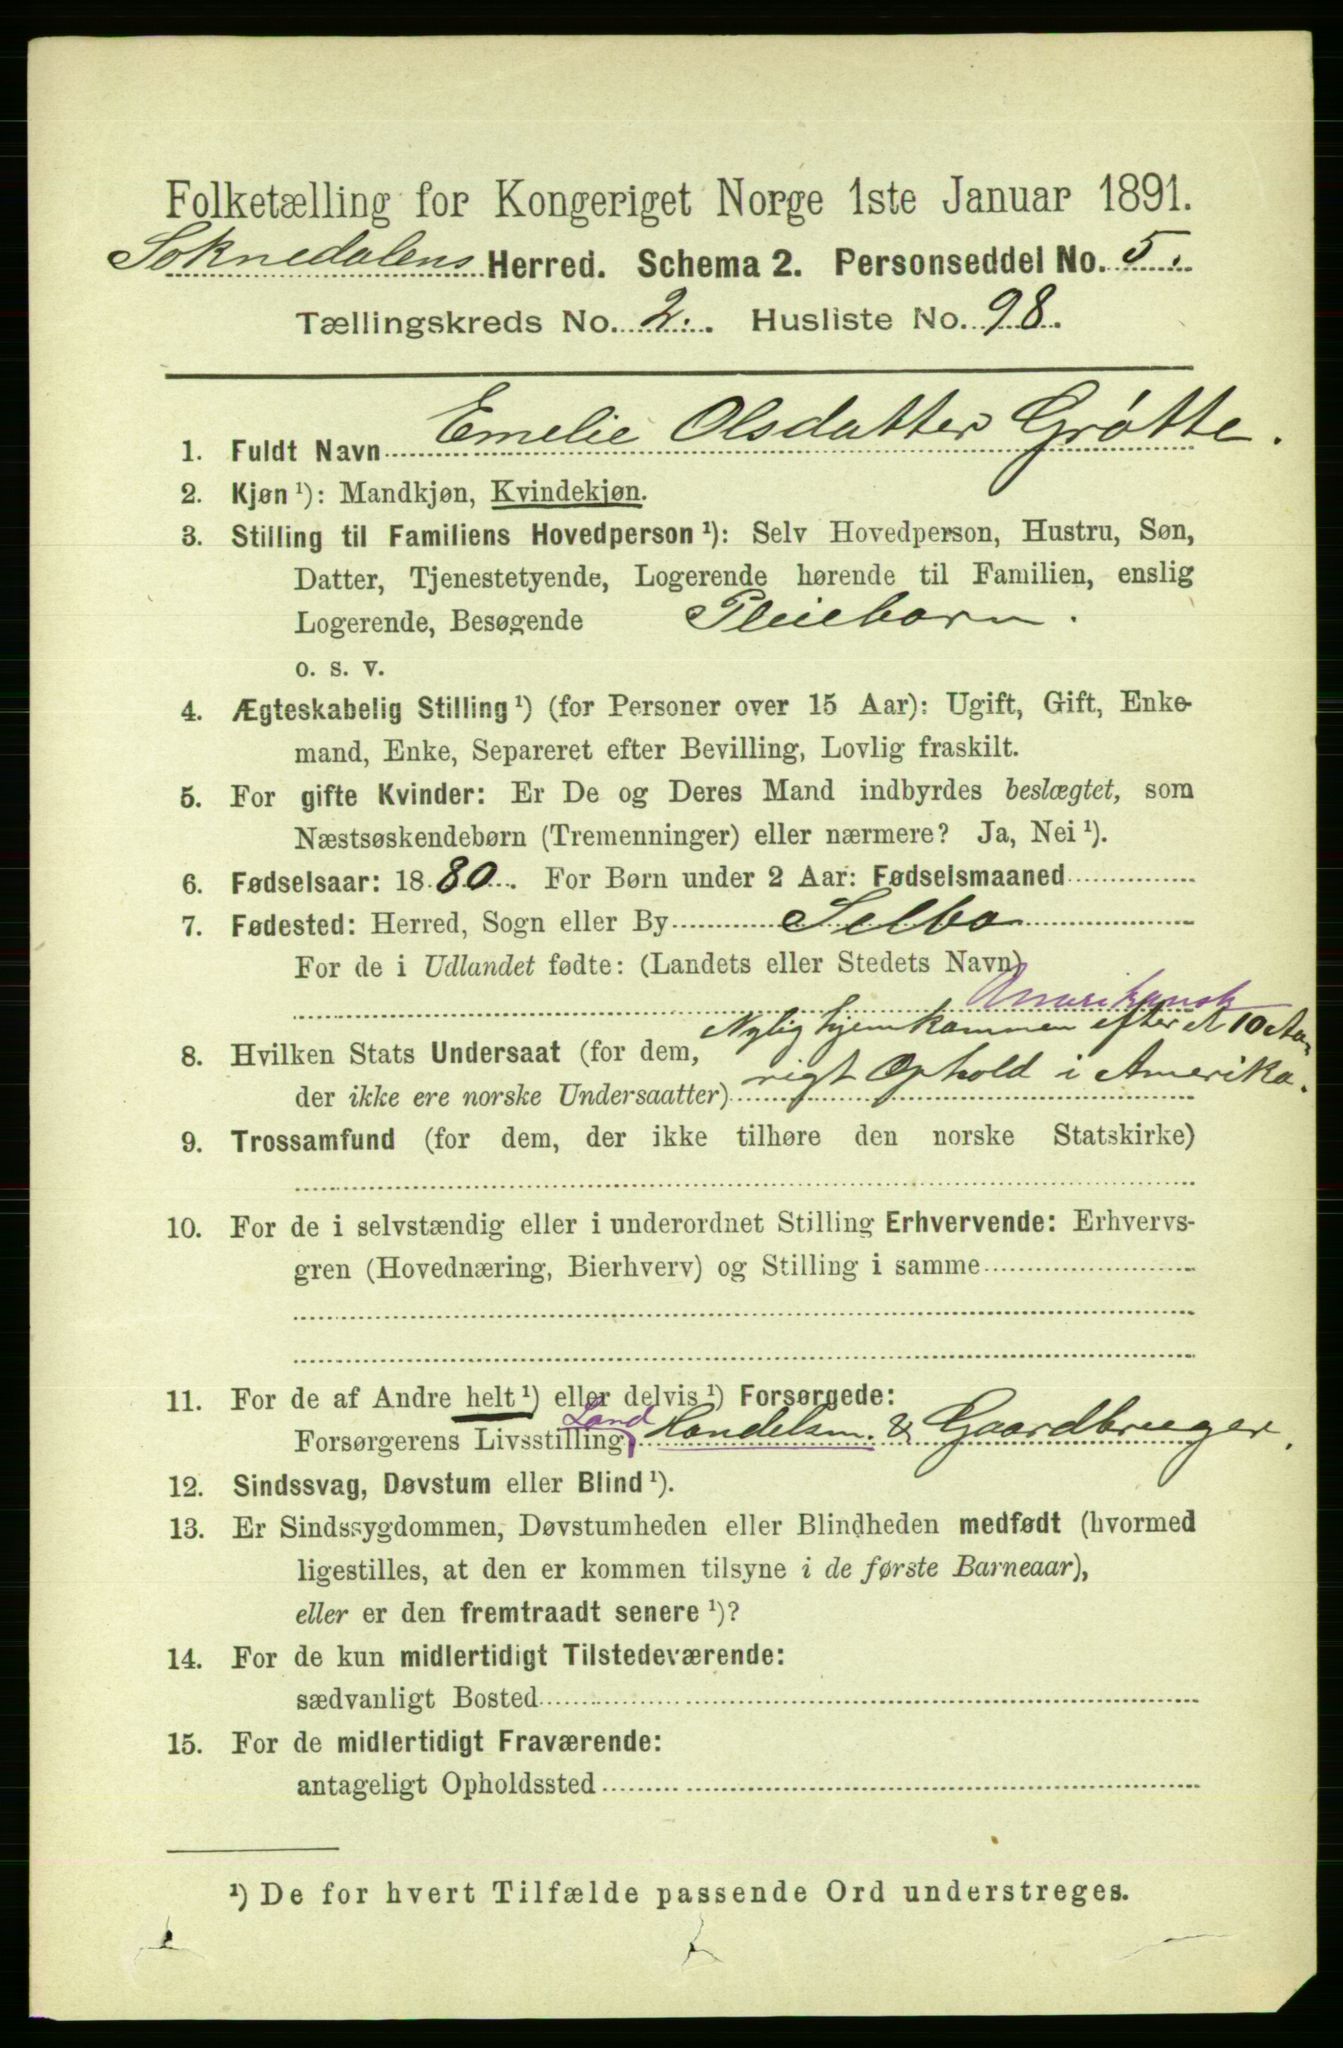 Folketælling for Kongeriget Norge 1ste Januar 1891.
Soknedalens Herred. Schema 2. Personseddel No. 5.
Tællingskreds No. 2. Husliste No. 98.
1. Fuldt Navn Emelie Olsdatter Grøtte.
2. Kjøn ¹): Mandkjøn, Kvindekjøn.
3. Stilling til Familiens Hovedperson ¹): Selv Hovedperson, Hustru, Søn,
Datter, Tjenestetyende, Logerende hørende til Familien, enslig
Logerende, Besøgende Pleiebarn.
o. s. v.
4. Ægteskabelig Stilling ¹) (for Personer over 15 Aar): Ugift, Gift, Enke-
mand, Enke, Separeret efter Bevilling, Lovlig fraskilt.
5. For gifte Kvinder: Er De og Deres Mand indbyrdes beslægtet, som
Næstsøskendebørn (Tremenninger) eller nærmere? Ja, Nei ¹).
6. Fødselsaar: 1880. For Børn under 2 Aar: Fødselsmaaned
7. Fødested: Herred, Sogn eller By Selbo
For de i Udlandet fødte: (Landets eller Stedets Navn)
Amerikansk
8. Hvilken Stats Undersaat (for dem, Nylig hjemkommen efter et 10 Aa-
der ikke ere norske Undersaatter) rigt Ophold i Amerika.
9. Trossamfund (for dem, der ikke tilhøre den norske Statskirke)
10. For de i selvstændig eller i underordnet Stilling Erhvervende: Erhvervs-
gren (Hovednæring, Bierhverv) og Stilling i samme
11. For de af Andre helt ¹) eller delvis ¹) Forsørgede:
Forsørgerens Livsstilling Land Handelsm. & Gaardbruger.
12. Sindssvag, Døvstum eller Blind ¹).
13. Er Sindssygdommen, Døvstumheden eller Blindheden medfødt (hvormed
ligestilles, at den er kommen tilsyne i de første Barneaar),
eller er den fremtraadt senere ¹)?
14. For de kun midlertidigt Tilstedeværende:
sædvanligt Bosted
15. For de midlertidigt Fraværende:
antageligt Opholdssted
¹) De for hvert Tilfælde passende Ord understreges.